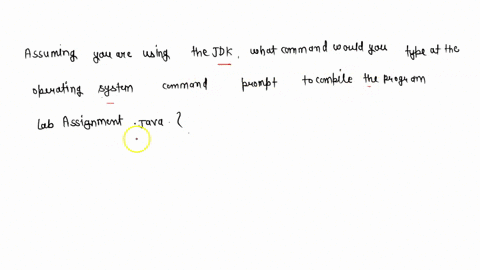 Assuming you are using the JDK, what command would you type at the
operating system command prompt to compile the program
Lab Assignment .java. {